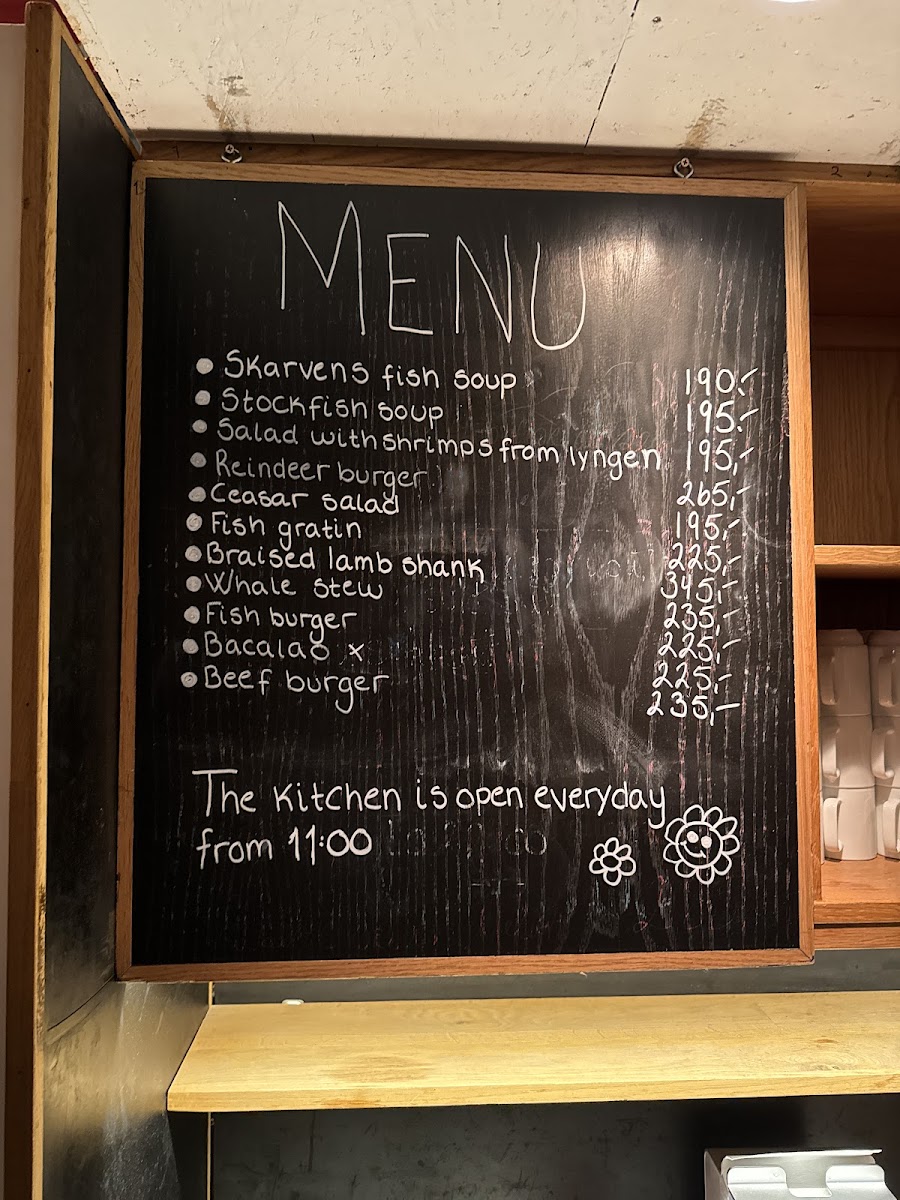 MENU
• Skarvens fish soup 190,-
• Stockfish soup 195,-
• Salad with shrimps from lyngen 195,-
• Reindeer burger 265,-
• Ceasar salad 195,-
• Fish gratin 225,-
• Braised lamb shank 345,-
• Whale stew 235,-
• Fish burger 225,-
• Bacalao x 225,-
• Beef burger 235,-
The kitchen is open everyday
from 11:00